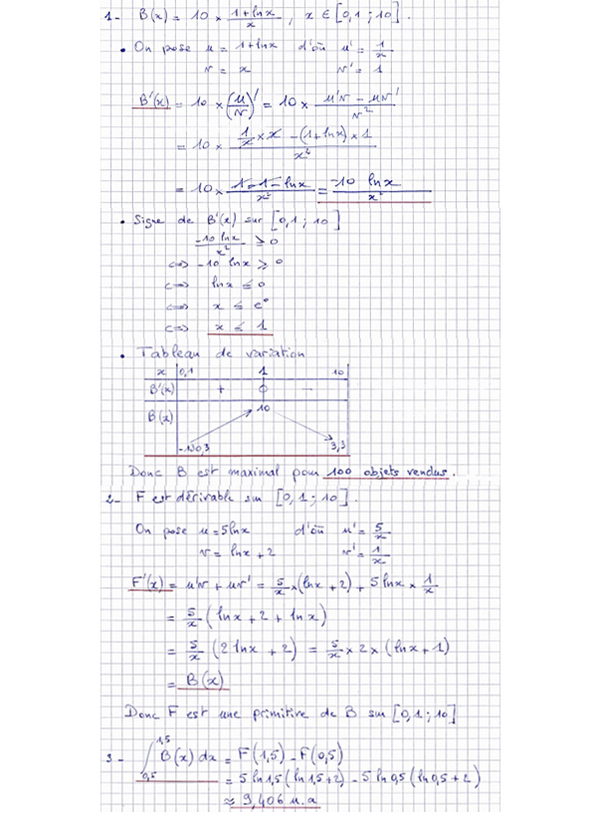 1- B(x) = 10 × (1+lnx)/x , x ∈ [0,1 ; 10].
• On pose u = 1+lnx d'où u' = 1/x
v = x v' = 1
B'(x) = 10 × (u/v)' = 10 × (u'v - uv')/v²
= 10 × (1/x × x - (1+lnx) × 1)/x²
= 10 × (1 - 1 - lnx)/x² = -10 lnx/x²
• Signe de B'(x) sur [0,1 ; 10]
-10 lnx/x² ≥ 0
<=> -10 lnx ≥ 0
<=> lnx ≤ 0
<=> x ≤ e⁰
<=> x ≤ 1
• Tableau de variation
x 0,1 1 10
B'(x) + 0 -
B(x) 10
-130,3 3,3
Donc B est maximal pour 100 objets vendus.
2- F est dérivable sur [0,1 ; 10].
On pose u = 5lnx d'où u' = 5/x
v = lnx + 2 v' = 1/x
F'(x) = u'v + uv' = 5/x × (lnx + 2) + 5lnx × 1/x
= 5/x (lnx + 2 + lnx)
= 5/x (2lnx + 2) = 5/x × 2 × (lnx + 1)
= B(x)
Donc F est une primitive de B sur [0,1 ; 10]
3- ∫ 1,5 0,5 B(x) dx = F(1,5) - F(0,5)
= 5 ln1,5 (ln1,5+2) - 5 ln0,5 (ln0,5+2)
≈ 9,406 u.a